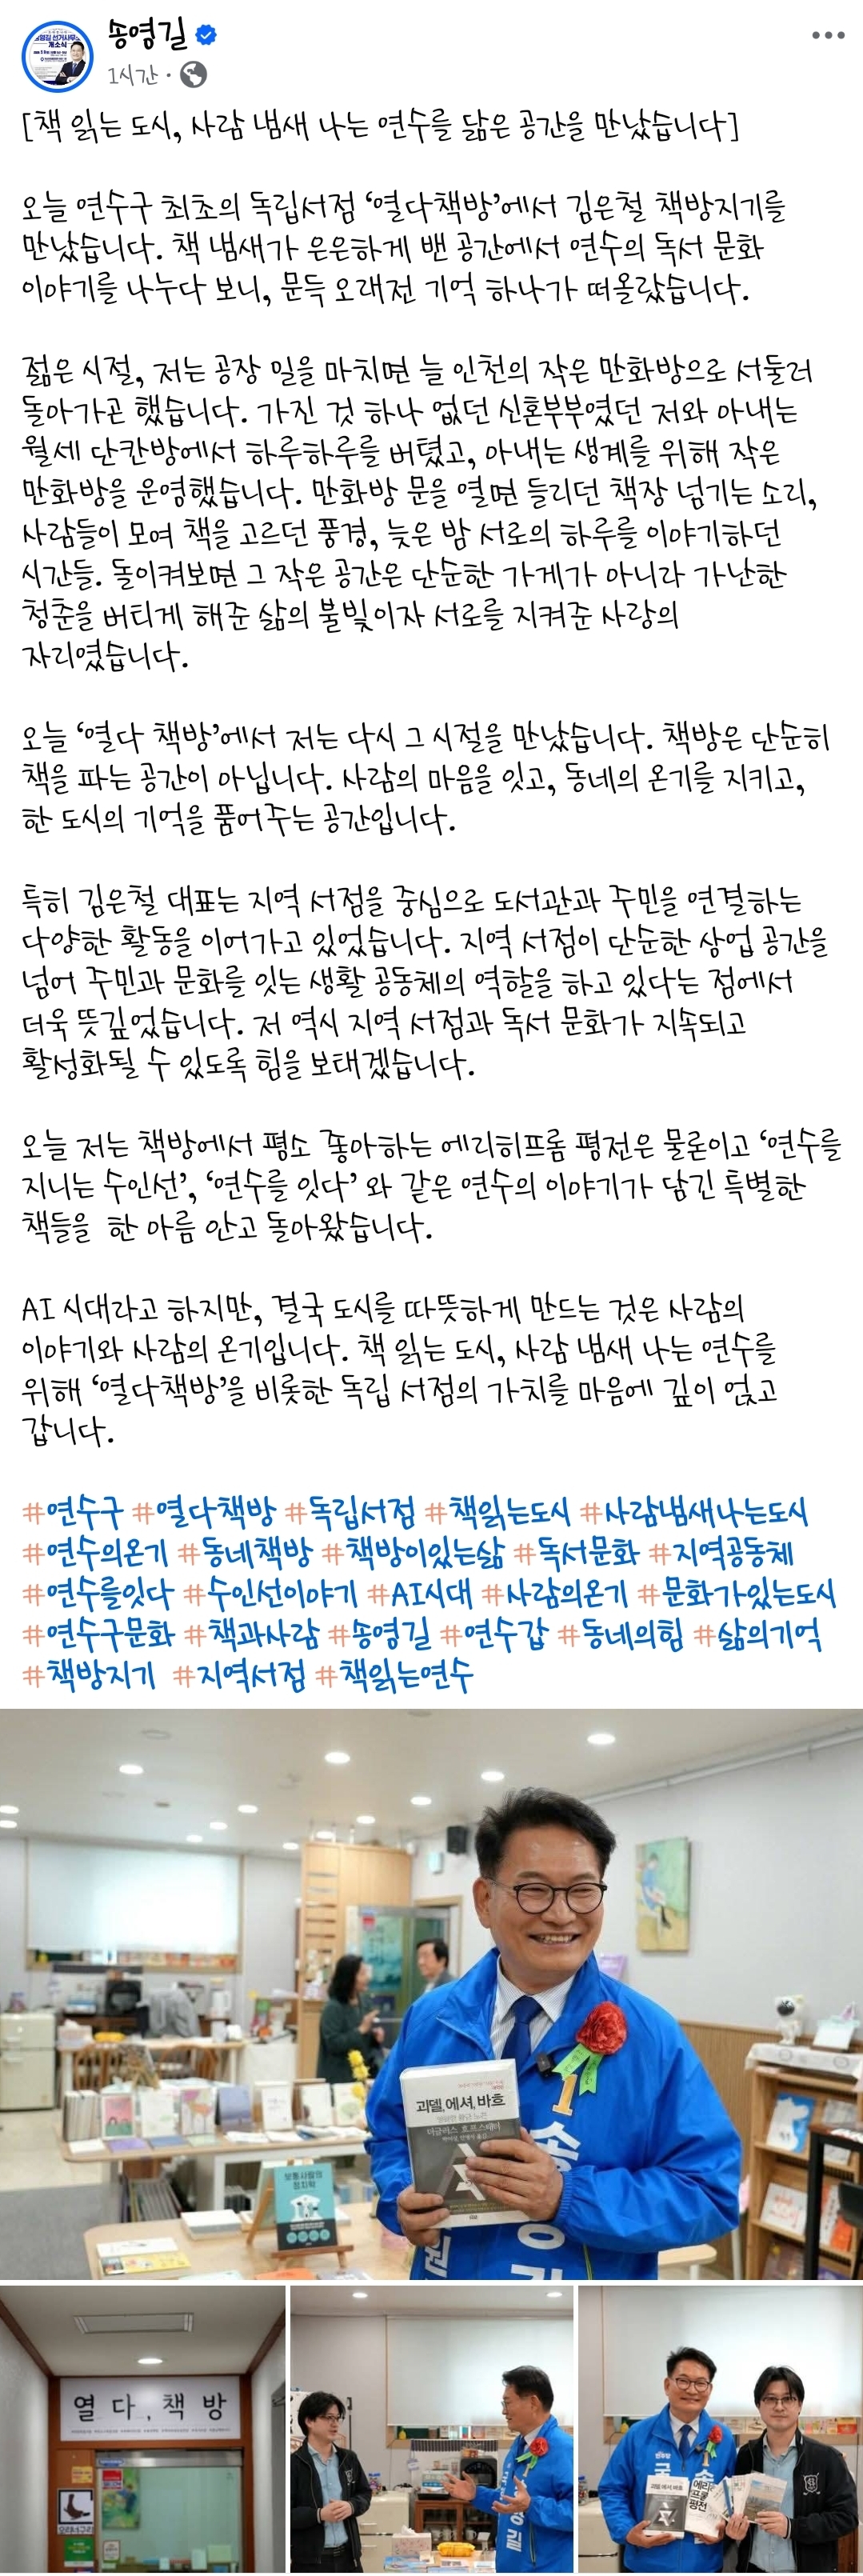 송영길
1시간 ·
[책 읽는 도시, 사람 냄새 나는 연수를 닮은 공간을 만났습니다]
오늘 연수구 최초의 독립서점 ‘열다책방’에서 김은철 책방지기를
만났습니다. 책 냄새가 은은하게 밴 공간에서 연수의 독서 문화
이야기를 나누다 보니, 문득 오래전 기억 하나가 떠올랐습니다.
젊은 시절, 저는 공장 일을 마치면 늘 인천의 작은 만화방으로 서둘러
돌아가곤 했습니다. 가진 것 하나 없던 신혼부부였던 저와 아내는
월세 단칸방에서 하루하루를 버텼고, 아내는 생계를 위해 작은
만화방을 운영했습니다. 만화방 문을 열면 들리던 책장 넘기는 소리,
사람들이 모여 책을 고르던 풍경, 늦은 밤 서로의 하루를 이야기하던
시간들. 돌이켜보면 그 작은 공간은 단순한 가게가 아니라 가난한
청춘을 버티게 해준 삶의 불빛이자 서로를 지켜준 사랑의
자리였습니다.
오늘 ‘열다 책방’에서 저는 다시 그 시절을 만났습니다. 책방은 단순히
책을 파는 공간이 아닙니다. 사람의 마음을 잇고, 동네의 온기를 지키고,
한 도시의 기억을 품어주는 공간입니다.
특히 김은철 대표는 지역 서점을 중심으로 도서관과 주민을 연결하는
다양한 활동을 이어가고 있었습니다. 지역 서점이 단순한 상업 공간을
넘어 주민과 문화를 잇는 생활 공동체의 역할을 하고 있다는 점에서
더욱 뜻깊었습니다. 저 역시 지역 서점과 독서 문화가 지속되고
활성화될 수 있도록 힘을 보태겠습니다.
오늘 저는 책방에서 평소 좋아하는 에리히프롬 평전은 물론이고 ‘연수를
지니는 수인선’, ‘연수를 잇다’ 와 같은 연수의 이야기가 담긴 특별한
책들을  한 아름 안고 돌아왔습니다.
AI 시대라고 하지만, 결국 도시를 따뜻하게 만드는 것은 사람의
이야기와 사람의 온기입니다. 책 읽는 도시, 사람 냄새 나는 연수를
위해 ‘열다책방’을 비롯한 독립 서점의 가치를 마음에 깊이 얹고
갑니다.
#연수구 #열다책방 #독립서점 #책읽는도시 #사람냄새나는도시
#연수의온기 #동네책방 #책방이있는삶 #독서문화 #지역공동체
#연수를잇다 #수인선이야기 #AI시대 #사람의온기 #문화가있는도시
#연수구문화 #책과사람 #송영길 #연수갑 #동네의힘 #삶의기억
#책방지기  #지역서점 #책읽는연수
괴델, 에셔, 바흐
더글러스 호프스태터
1
송영길
보통사람의
정치학
열다, 책방
오리너구리
송영길
괴델, 에셔, 바흐
에리
프롬
평전